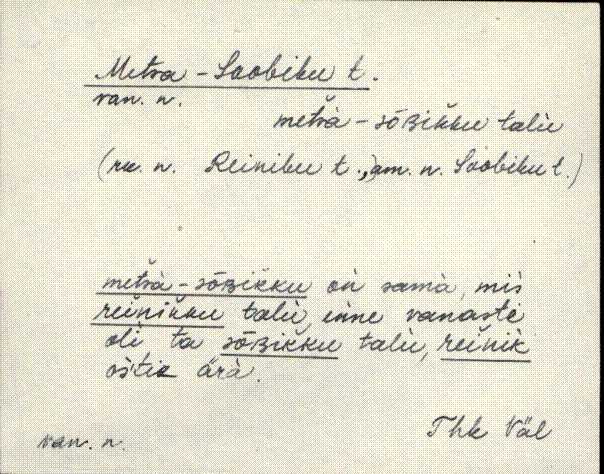 Metsa - Soobiku t.
van. n.
metsà - sōʙikku talu
(rv. n. Reiniku t., am. n. Soobiku t.)
metsà - sōʙikku oǹ samà, mis
reinikku talù, enne vanasté
oli ta sōʙikku talu, reinik
ostis ärà.
Thk Väl
van. n.